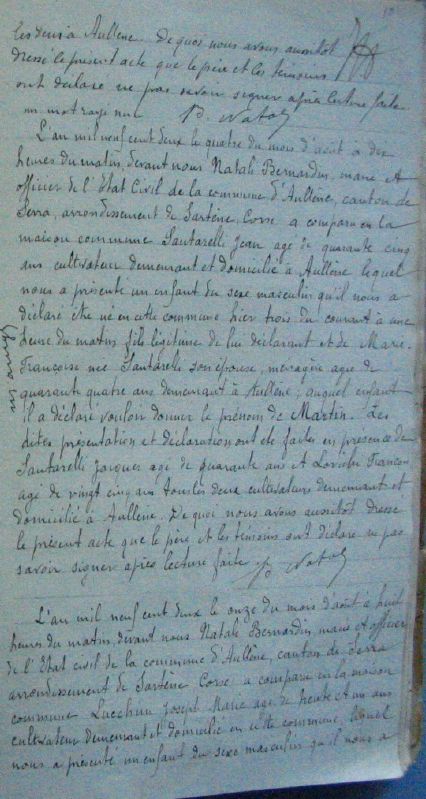 les deux à Aullène. De quoi nous avons aussitôt
dressé le présent acte que le père et les témoins
ont déclaré ne pas savoir signer après lecture faite
un mot rayé nul B. Natali
L'an mil neuf cent deux le quatre du mois d'août à dix
heures du matin, devant nous Natale Bernardin, maire et
officier de l'Etat Civil de la commune d'Aullène, canton de
Serra, arrondissement de Sartène, Corse, a comparu en la
maison commune Santarelli Jean âgé de quarante cinq
ans cultivateur demeurant et domicilié à Aullène lequel
nous a présenté un enfant du sexe masculin qu'il nous a
déclaré être né en cette commune hier trois du courant à une
heure du matin fils légitime de lui déclarant et de Marie
Françoise née Santarelli son épouse, ménagère âgée de
quarante quatre ans demeurant à Aullène; auquel enfant
il a déclaré vouloir donner le prénom de Martin. Les
dites présentation et déclaration ont été faites en présence de
Santarelli Jacques âgé de quarante ans et Lovichi François
âgé de vingt cinq ans tous les deux cultivateurs demeurant et
domicilié à Aullène. De quoi nous avons aussitôt dressé
le présent acte que le père et les témoins ont déclaré ne pas
savoir signer après lecture faite B. Natali
L'an mil neuf cent deux le onze du mois d'août à huit
heures du matin, devant nous Natale Bernardin, maire et officier
de l'Etat civil de la commune d'Aullène, canton de Serra
arrondissement de Sartène Corse a comparu en la maison
commune Lucchini Joseph Marie âgé de trente et un ans
cultivateur demeurant et domicilié en cette commune, lequel
nous a présenté un enfant du sexe masculin qu'il nous a